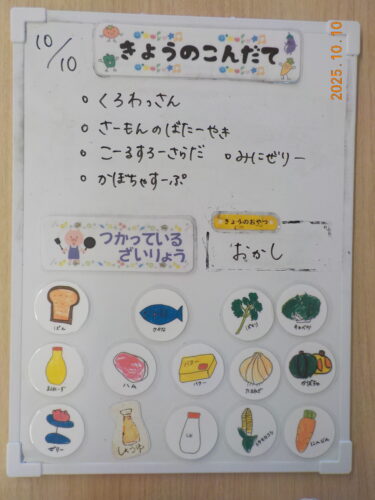 2025.10.10
10/10
きょうのこんだて
くろわっさん
さーもんのばたーやき
こーるすろーさらだ
みにぜりー
かぼちゃすーぷ
つかっている
ざいりょう
きょうのおやつ
おかし
ぱん
さかな
ぱせり
きゃべつ
まよねーず
ハム
バター
バター
たまねぎ
かぼちゃ
ゼリー
しょう油
しお
とうもろこし
にんじん